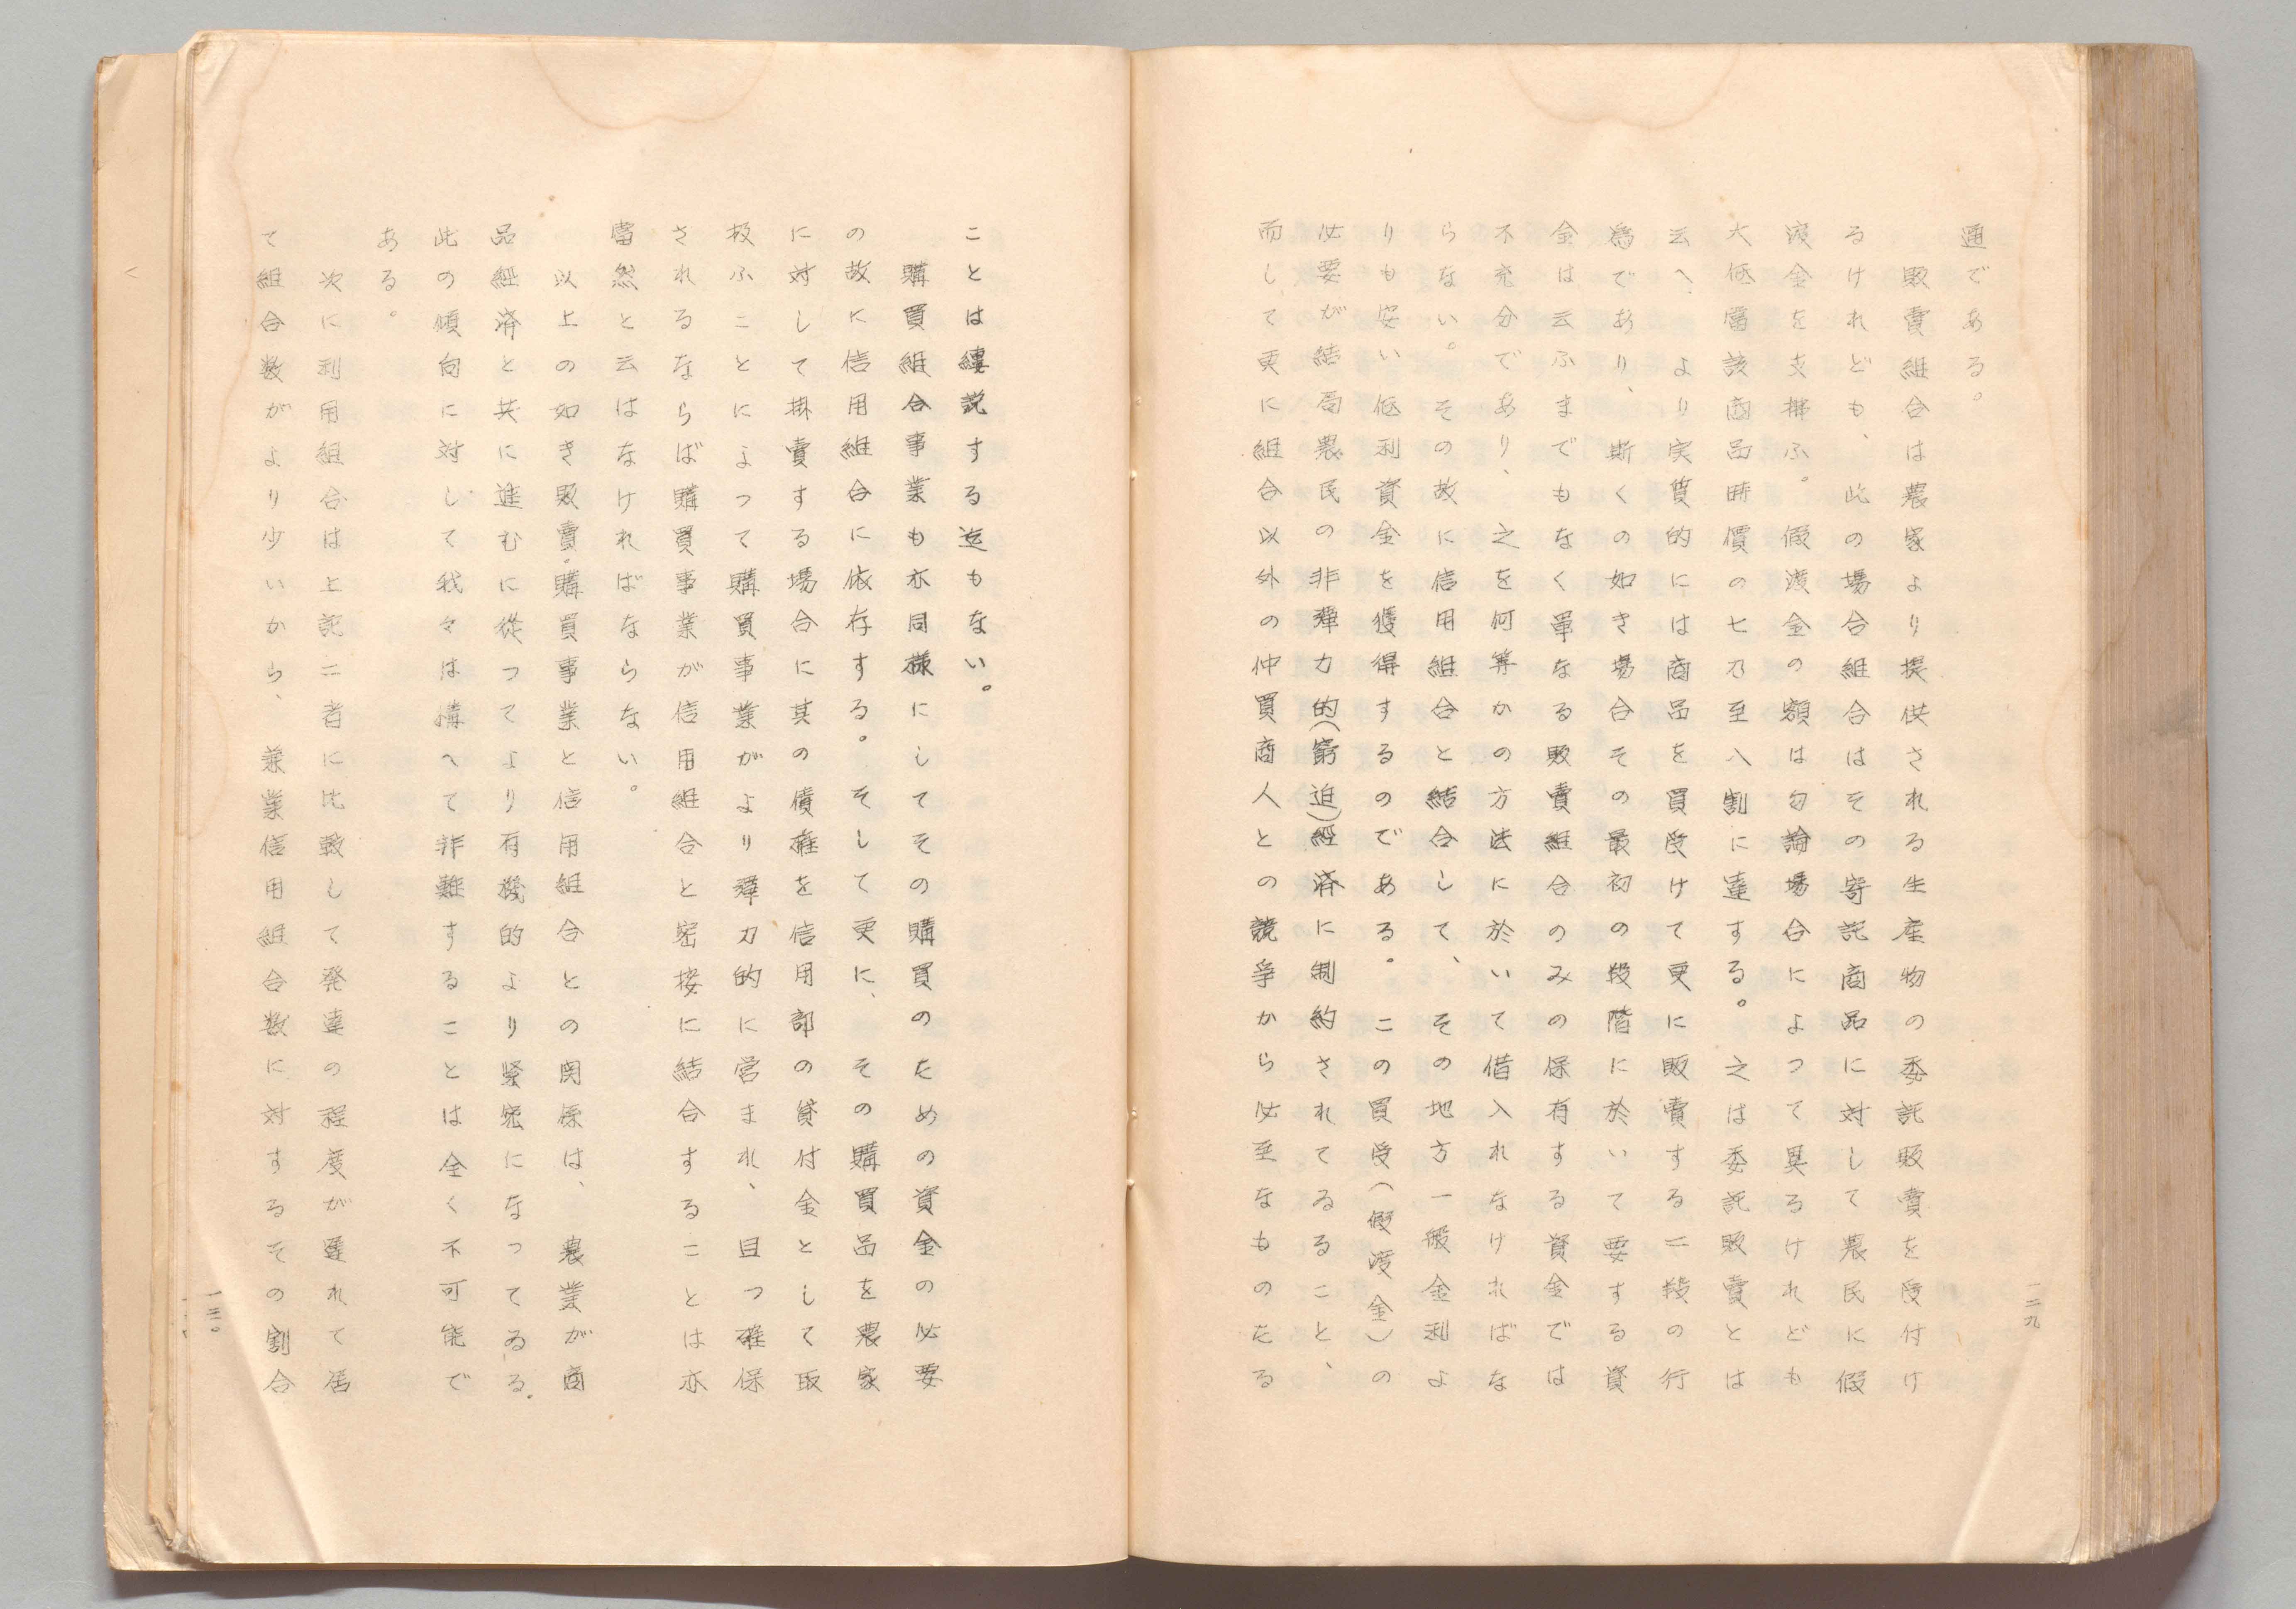 通である。
販賣組合は農家より提供される生産物の委託販賣を受付け
るけれども、此の場合組合はその寄託商品に対して農民に假
渡金を支拂ふ。假渡金の額は勿論場合によつて異るけれども
大低當該商品時價の七乃至八割に達する。之は委託販賣とは
云へ、より実質的には商品を買受けて更に販賣する一段の行
為であり、斯くの如き場合その最初の段階に於いて要する資
金は云ふまでもなく單なる販賣組合のみの保有する資金では
不充分であり、之を何等かの方法に於いて借入れなければな
らない。その故に信用組合と結合して、その地方一般金利よ
りも安い低利資金を獲得するのである。この買受(假渡金)の
必要が結局農民の非彈力的(窮迫)経済に制約されてゐること、
而して更に組合以外の仲買商人との競争から必至なものたる
一二九
ことは縷説する迄もない。
購買組合事業も亦同様にしてその購買のための資金の必要
の故に信用組合に依存する。そして更に、その購買品を農家
に対して掛賣する場合に其の債権を信用部の貸付金として取
扱ふことによつて購買事業がより彈力的に営まれ、且つ確保
されるならば購買事業が信用組合と密接に結合することは亦
當然と云はなければならない。
以上の如き販賣・購買事業と信用組合との関係は、農業が商
品経済と共に進むに從つてより有機的より緊密になつてゐる。
此の傾向に対して我々は構へて非難することは全く不可能で
ある。
次に利用組合は上記二者に比較して発達の程度が遅れて居
て組合数がより少いから、兼業信用組合数に対するその割合
一三〇